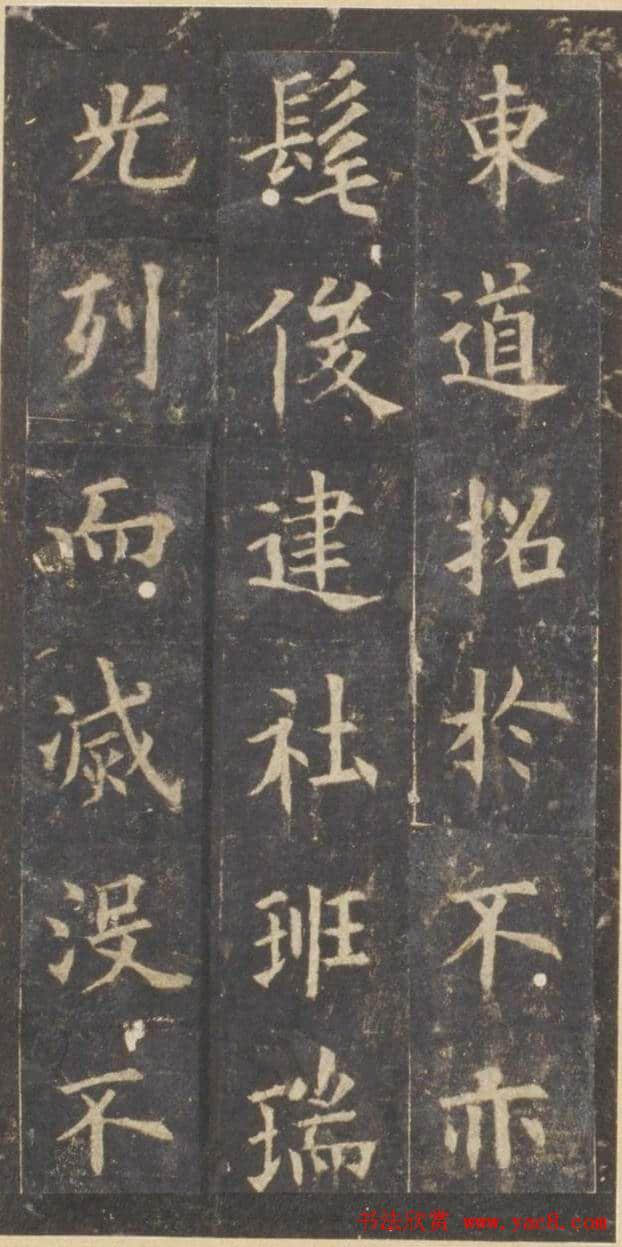 東道招於不亦
髦俊建社班瑞
光列而滅没不
书法欣赏 www.yac8.com